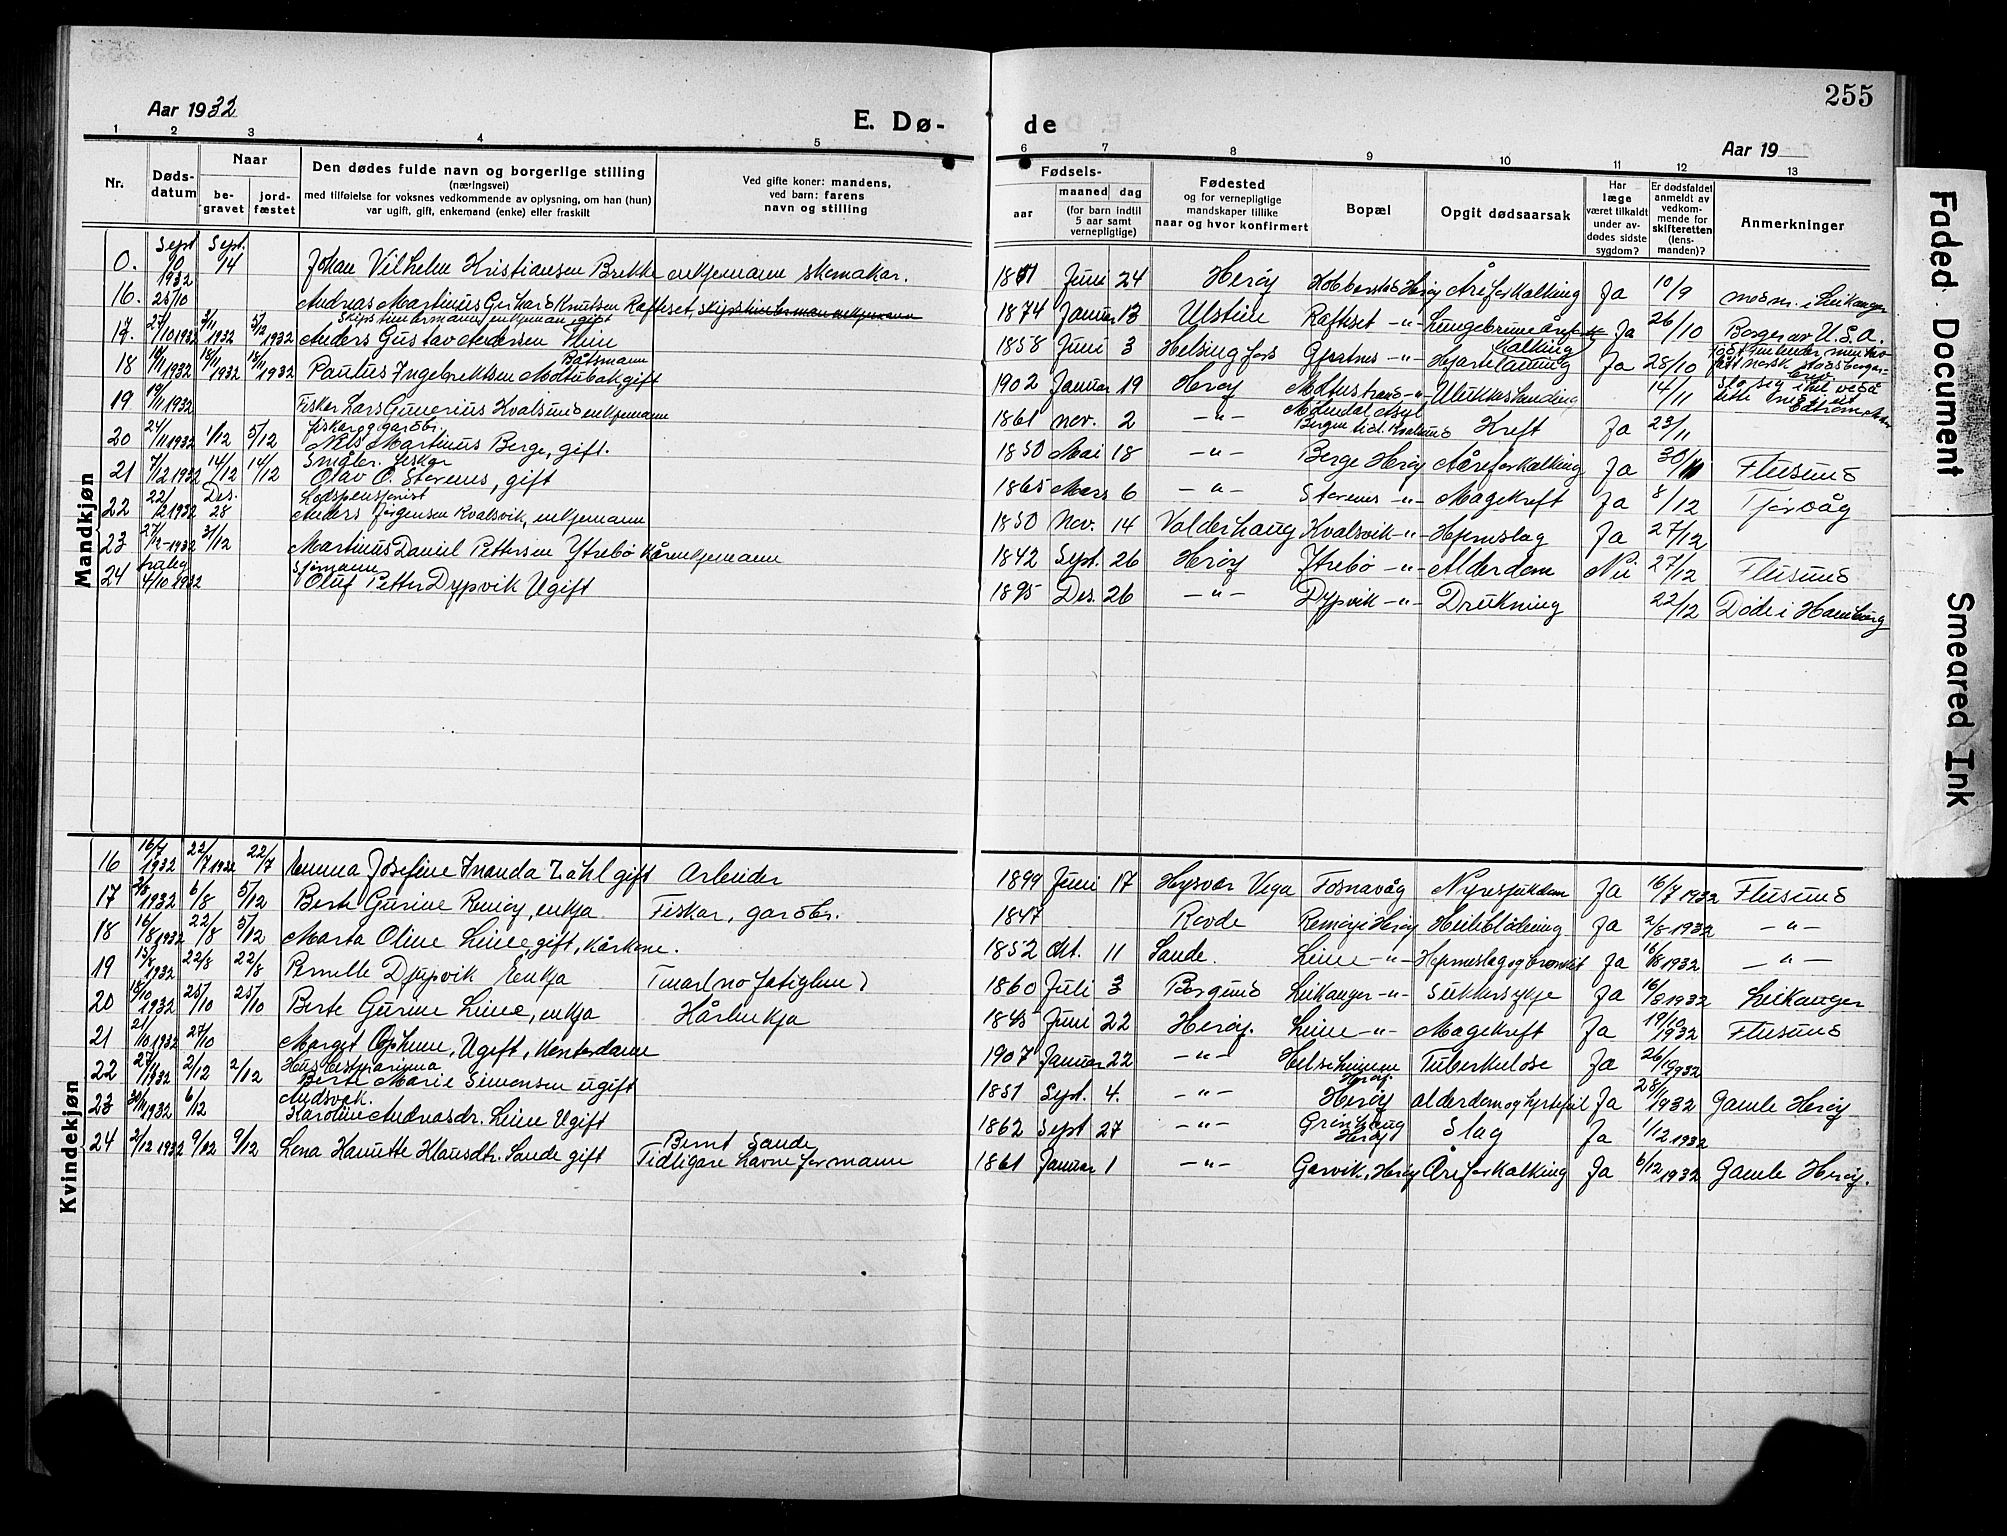 255
Aar 1932
E. Dø-
de
Aar 19
1 2 3 4 5
6 7 8 9 10 11 12 13
Nr.
Døds-
datum
Naar
be-
gravet
jord-
fæstet
Den dødes fulde navn og borgerlige stilling
(næringsvei)
med tilføielse for voksnes vedkommende av oplysning, om han (hun)
var ugift, gift, enkemand (enke) eller fraskilt
Ved gifte koner: mandens,
ved barn: farens
navn og stilling
Fødsels-
aar
maaned dag
(for barn indtil
5 aar samt
vernepligtige)
Fødested
og for vernepligtige
mandskaper tillike
naar og hvor konfirmert
Bopæl
Opgit dødsaarsak
Har
læge
været tilkaldt
under av-
dødes sidste
sygdom?
Er dødsfaldet
anmeldt av
vedkom-
mende for
skifteretten
(lens-
manden)?
Anmerkninger
Mandkjøn
0. Sept 10 1932 Sept. 14 Johan Vilhelm Kristiansen Brekke enkjemann skomakar. Juni 24 Herøy Åreforkalking Ja 10/9
16. 25/10 Andreas Martinus Gerhard Knutsen Raftset, skipstimberman enkjemann 1874 Januar 13 Ulstein Raftset -"- Ja 26/10
Skipstimbermann, enkjeman, gift
17. 27/10 1932 3/11 1932 5/12 1932 Anders Gustav Andersen 1858 Juni 3 Helsingfors Gjertnes -"- Ja 28/10 Borger av U.S.A.
Båtsmann
18 10/11 1932 18/11 1932 18/11 1932 Paulus Ingebrektsen Moltubak, gift 1902 Januar 19 Herøy Moltustrand -"- Ulukkeshending 14/11
19 19/11 1932 Fisker Lars Gunerius Kvalsund enkjemann 1861 nov. 2 -"- Kreft Ja 23/11
Fisker og gardbr.
20 24/11 1932 1/12 5/12 Nils Martinus Berge, gift. 1850 Mai 18 -"- Berge Herøy Åreforkalking Ja 30/11 Flusund
Småbr. fisker
21 7/12 1932 14/12 14/12 Olav O. Stevnes, gift 1865 Mars 6 -"- Stevnes -"- Magekreft Ja 8/12 Tjørvåg
Lodspensjonist
22 22/12 1932 Des. 28 Anders Jørgensen Kvalsvik, enkjemann 1850 Nov. 14 Valderhaug Kvalsvik -"- Hjernslag Ja 27/12
23 27/12-1932 31/12 Martinus Daniel Pettersen Ytrebø Kårenkjemann 1842 Sept. 26 Herøy Ytrebø -"- Alderdom Nei 27/12 Flusund
Sjømann
24 4/10 1932 Oluf Petter Dypvik Ugift 1895 Des. 26 -"- Dypvik -"- Drukning 22/12 Døde i Hamburg
Kvindekjøn
16 16/7 1932 22/7 1932 22/7 Emma Josefine Inanda Zahl gift Arbeider 1899 Juni 17 Hysvær Vega Fosnavåg Nyresjukdom Ja 16/7 1932 Flusund
17 2/8 1932 6/8 5/12 Berte Gurine Remøy, enkja Fiskar, gardbr. 1847 Rovde Remøy i Herøy Heilebløding Ja 2/8 1932 -"-
18 16/8 1932 22/8 5/12 Marta Oline Leine, gift, kårkone. 1852 Okt. 11 Sande. Leine -"- Hjerneslag og bronkit Ja 16/8 1932 -"-
19 15/8 1932 22/8 22/8 Pernille Djupvik Enkja 1860 Juli 3 Borgund Leikanger -"- Sukkersykje Ja 16/8 1932 Leikanger
20 18/10 1932 25/10 25/10 Berte Gurine Leine, enkja Kårenkja 1845 Juni 22 Herøy. Leine -"- Magekreft Ja 19/10 1932 Flusund
21 21/10 1932 27/10 Marget Opheim, Ugift, Kontordame 1907 Januar 22 -"- Helseheimen Herøy. Tuberkulose Ja 26/10 1932
22 27/11 1932 2/12 2/12 Berte Marie Simonsen ugift 1851 Sept. 4. -"- Herøy alderdom og hjertefeil Ja 28/11 1932 Gamle Herøy
23 30/11 1932 6/12 Karoline Andreasdr. Leine Ugift 1862 Sept 27 -"- Grønhaug Herøy Slag Ja 1/12 1932
24 2/12 1932 9/12 9/12 Lena Hanette Klausdtr. Sande gift Bernt Sande Tidligare havneformann 1861 Januar 1 -"- Gorvik, Herøy Åreforkalking Ja 6/12 1932 Gamle Herøy.
Faded Document
Smeared Ink